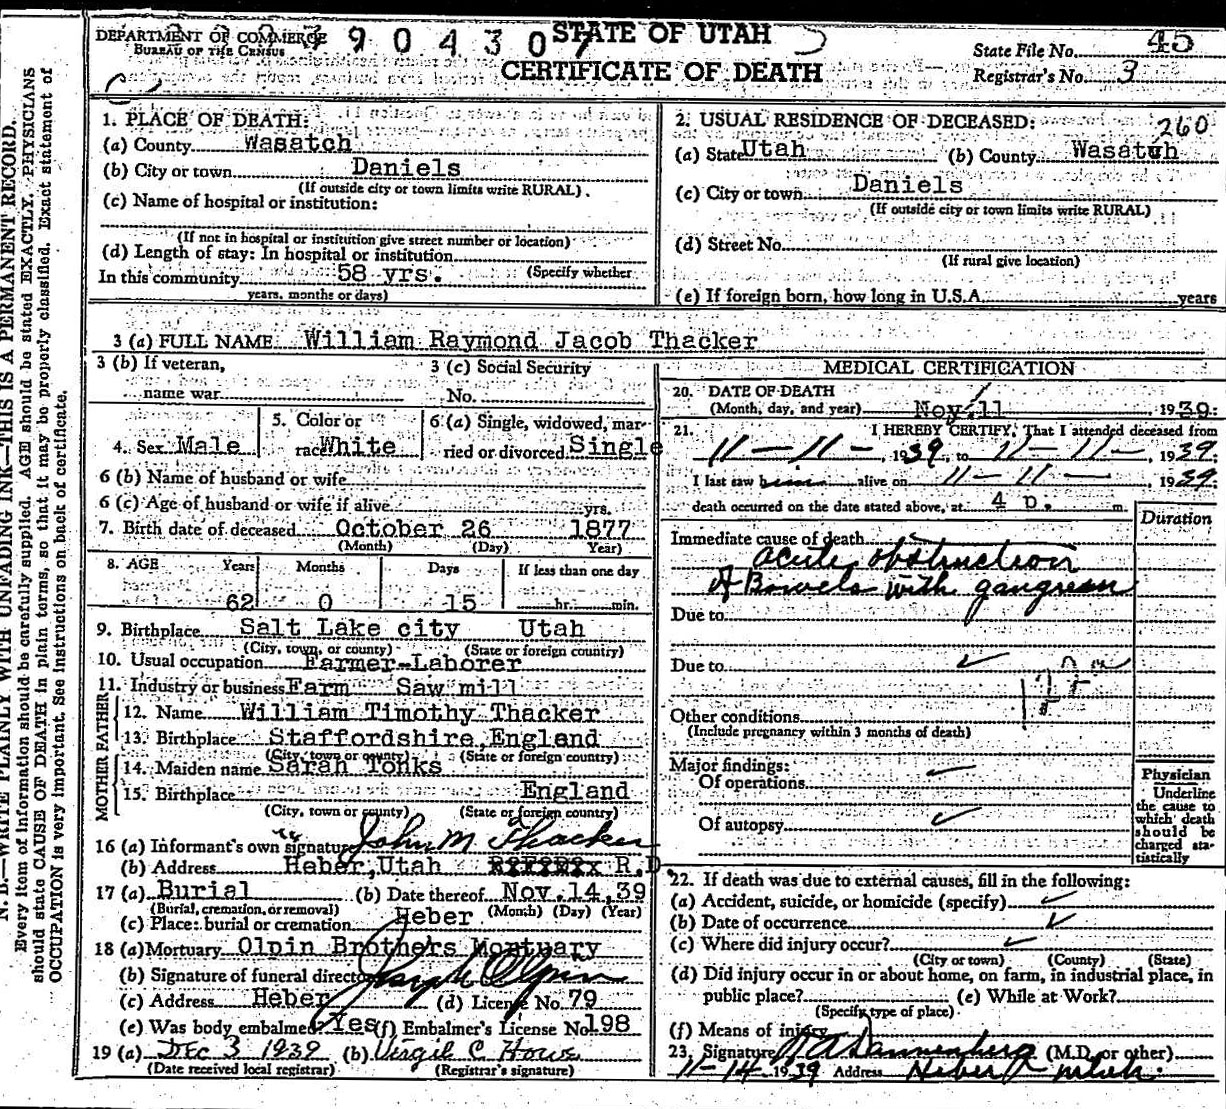 DEPARTMENT OF COMMERCE
BUREAU OF THE CENSUS
3 9 0 4 3 0 7
STATE OF UTAH
CERTIFICATE OF DEATH
State File No. 45
Registrar's No. 3
1. PLACE OF DEATH:
(a) County Wasatch
(b) City or town Daniels
(If outside city or town limits write RURAL).
(c) Name of hospital or institution:
(If not in hospital or institution give street number or location)
(d) Length of stay: In hospital or institution
In this community 58 yrs. (Specify whether
years, months or days)
2. USUAL RESIDENCE OF DECEASED: 260
(a) State Utah (b) County Wasatch
(c) City or town Daniels
(If outside city or town limits write RURAL)
(d) Street No.
(If rural give location)
(e) If foreign born, how long in U.S.A. years
3 (a) FULL NAME William Raymond Jacob Thacker
3 (b) If veteran,
name war
3 (c) Social Security
No.
4. Sex Male
5. Color or
race White
6 (a) Single, widowed, mar-
ried or divorced Single
6 (b) Name of husband or wife
6 (c) Age of husband or wife if alive yrs.
7. Birth date of deceased October 26 1877
(Month) (Day) Year)
8. AGE Years Months Days If less than one day
62 0 15 hr. min.
9. Birthplace Salt Lake city Utah
(City, town, or county) (State or foreign country)
10. Usual occupation Farmer-Laborer
11. Industry or business Farm Saw mill
FATHER
12. Name William Timothy Thacker
13. Birthplace Staffordshire, England
(City, town or county) (State or foreign country)
MOTHER
14. Maiden name Sarah Tonks
15. Birthplace England
(City, town or county) (State or foreign country)
16 (a) Informant's own signature John M Thacker
(b) Address Heber, Utah R.D.
17 (a) Burial (b) Date thereof Nov. 14, 39
(Burial, cremation, or removal) (Month) (Day) (Year)
(c) Place: burial or cremation Heber
18 (a) Mortuary Olpin Brothers Mortuary
(b) Signature of funeral director Joseph Olpin
(c) Address Heber (d) License No. 79
(e) Was body embalmed? Yes (f) Embalmer's License No. 198
19 (a) Dec 3 1939 (b) Virgil C Howe
(Date received local registrar) (Registrar's signature)
MEDICAL CERTIFICATION
20. DATE OF DEATH
(Month, day, and year) Nov. 11, 1939.
21. I HEREBY CERTIFY, That I attended deceased from
11-11-, 1939, to 11-11-, 1939.
I last saw him alive on 11-11-, 1939.
death occurred on the date stated above, at 4 p. m.
Duration
Immediate cause of death
acute obstruction
of Bowels with gangreen
Due to
Due to ✓
Other conditions
(Include pregnancy within 3 months of death)
Major findings:
Of operations ✓
Of autopsy ✓
Physician
Underline
the cause to
which death
should be
charged sta-
tistically
22. If death was due to external causes, fill in the following:
(a) Accident, suicide, or homicide (specify) ✓
(b) Date of occurrence ✓
(c) Where did injury occur? ✓
(City or town) (County) (State)
(d) Did injury occur in or about home, on farm, in industrial place, in
public place? (e) While at Work?
(Specify type of place)
(f) Means of injury
23. Signature Dannenberg (M.D. or other)
11-14-1939 Address Heber Utah.
N. B.—WRITE PLAINLY WITH UNFADING INK—THIS IS A PERMANENT RECORD.
Every item of information should be carefully supplied. AGE should be stated EXACTLY. PHYSICIANS
should state CAUSE OF DEATH in plain terms, so that it may be properly classified. Exact statement of
OCCUPATION is very important. See instructions on back of certificate.